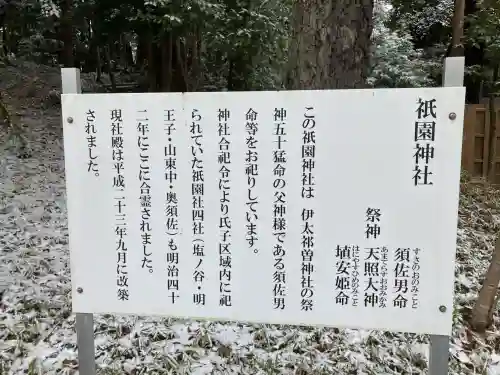 祇園神社
すさのおのみこと
須佐男命
祭神
あまてらすおおみかみ
天照大神
はにやすひめのみこと
埴安姫命
この祇園神社は 伊太祁曽神社の祭
神五十猛命の父神様である須佐男
命等をお祀りしています。
神社合祀令により氏子区域内に祀
られていた祇園社四社(塩ノ谷・明
王子・山東中・奥須佐)も明治四十
二年にここに合霊されました。
現社殿は平成二十三年九月に改築
されました。